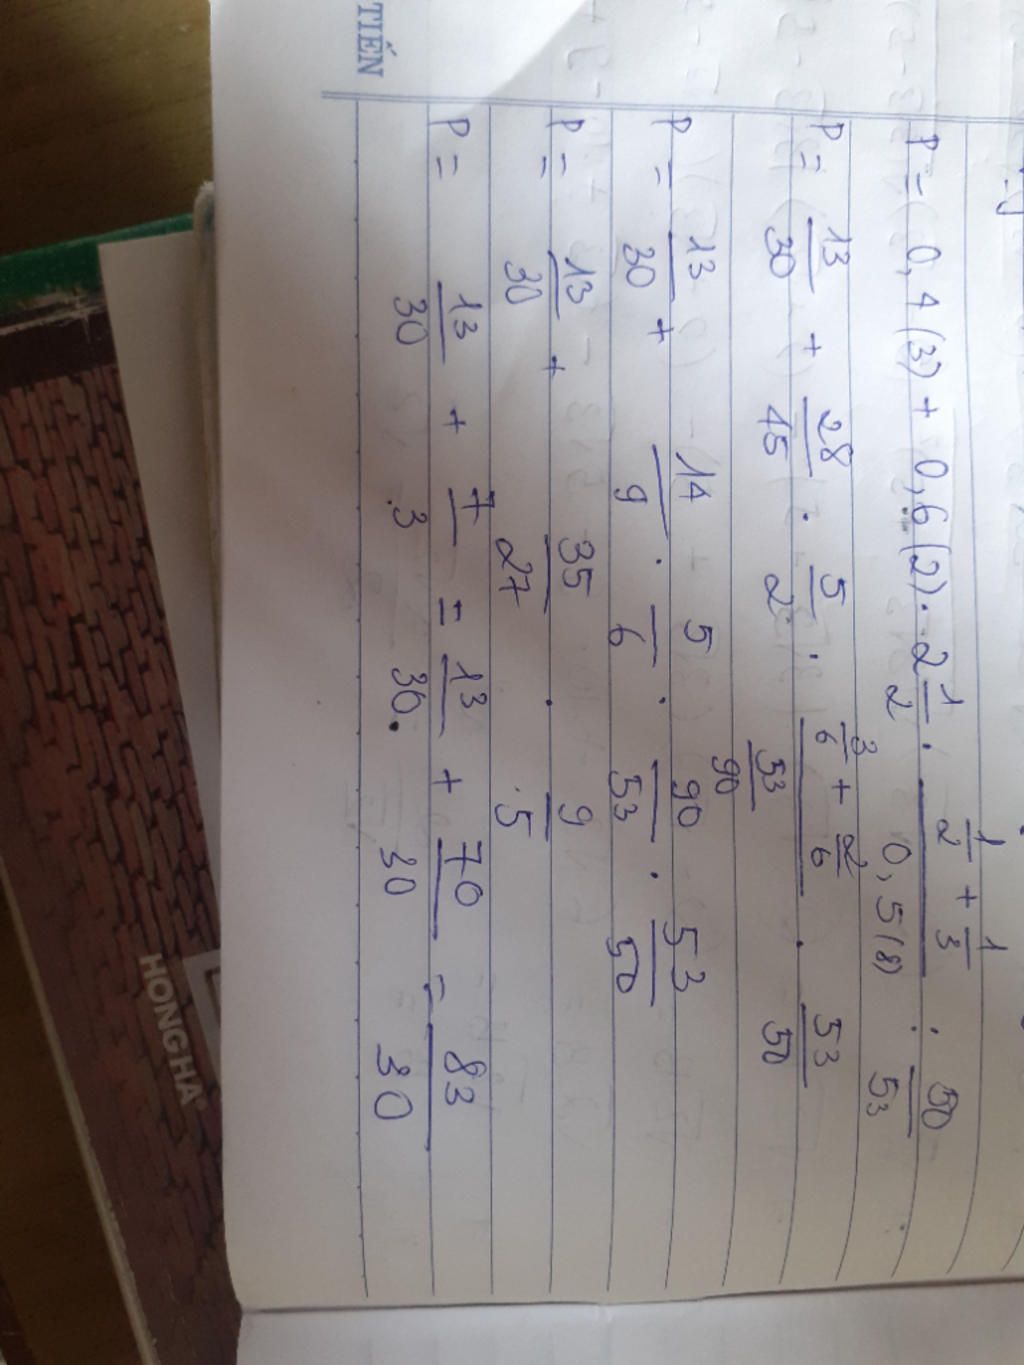 P = 0,4(3) + 0,6(2) . 2 1/2 . (1/2 + 1/3)/(0,5(8)) : 50/53
P = 13/30 + 28/45 . 5/2 . (3/6 + 2/6)/(53/90) . 53/50
P = 13/30 + 14/9 . 5/6 . 90/53 . 53/50
P = 13/30 + 35/27 . 9/5
P = 13/30 + 7/3 = 13/30 + 70/30 = 83/30
TIẾN
HONGHA